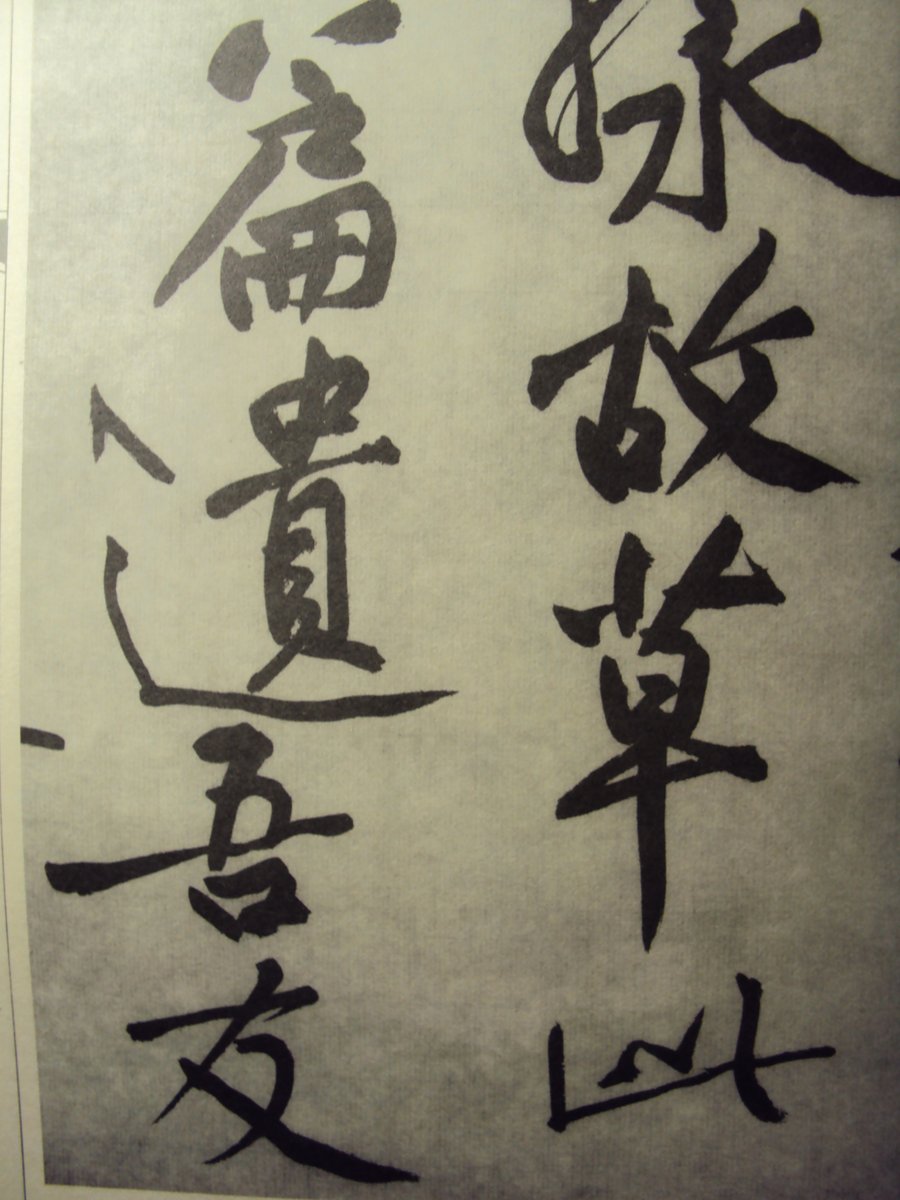 故草此
篇遺吾友